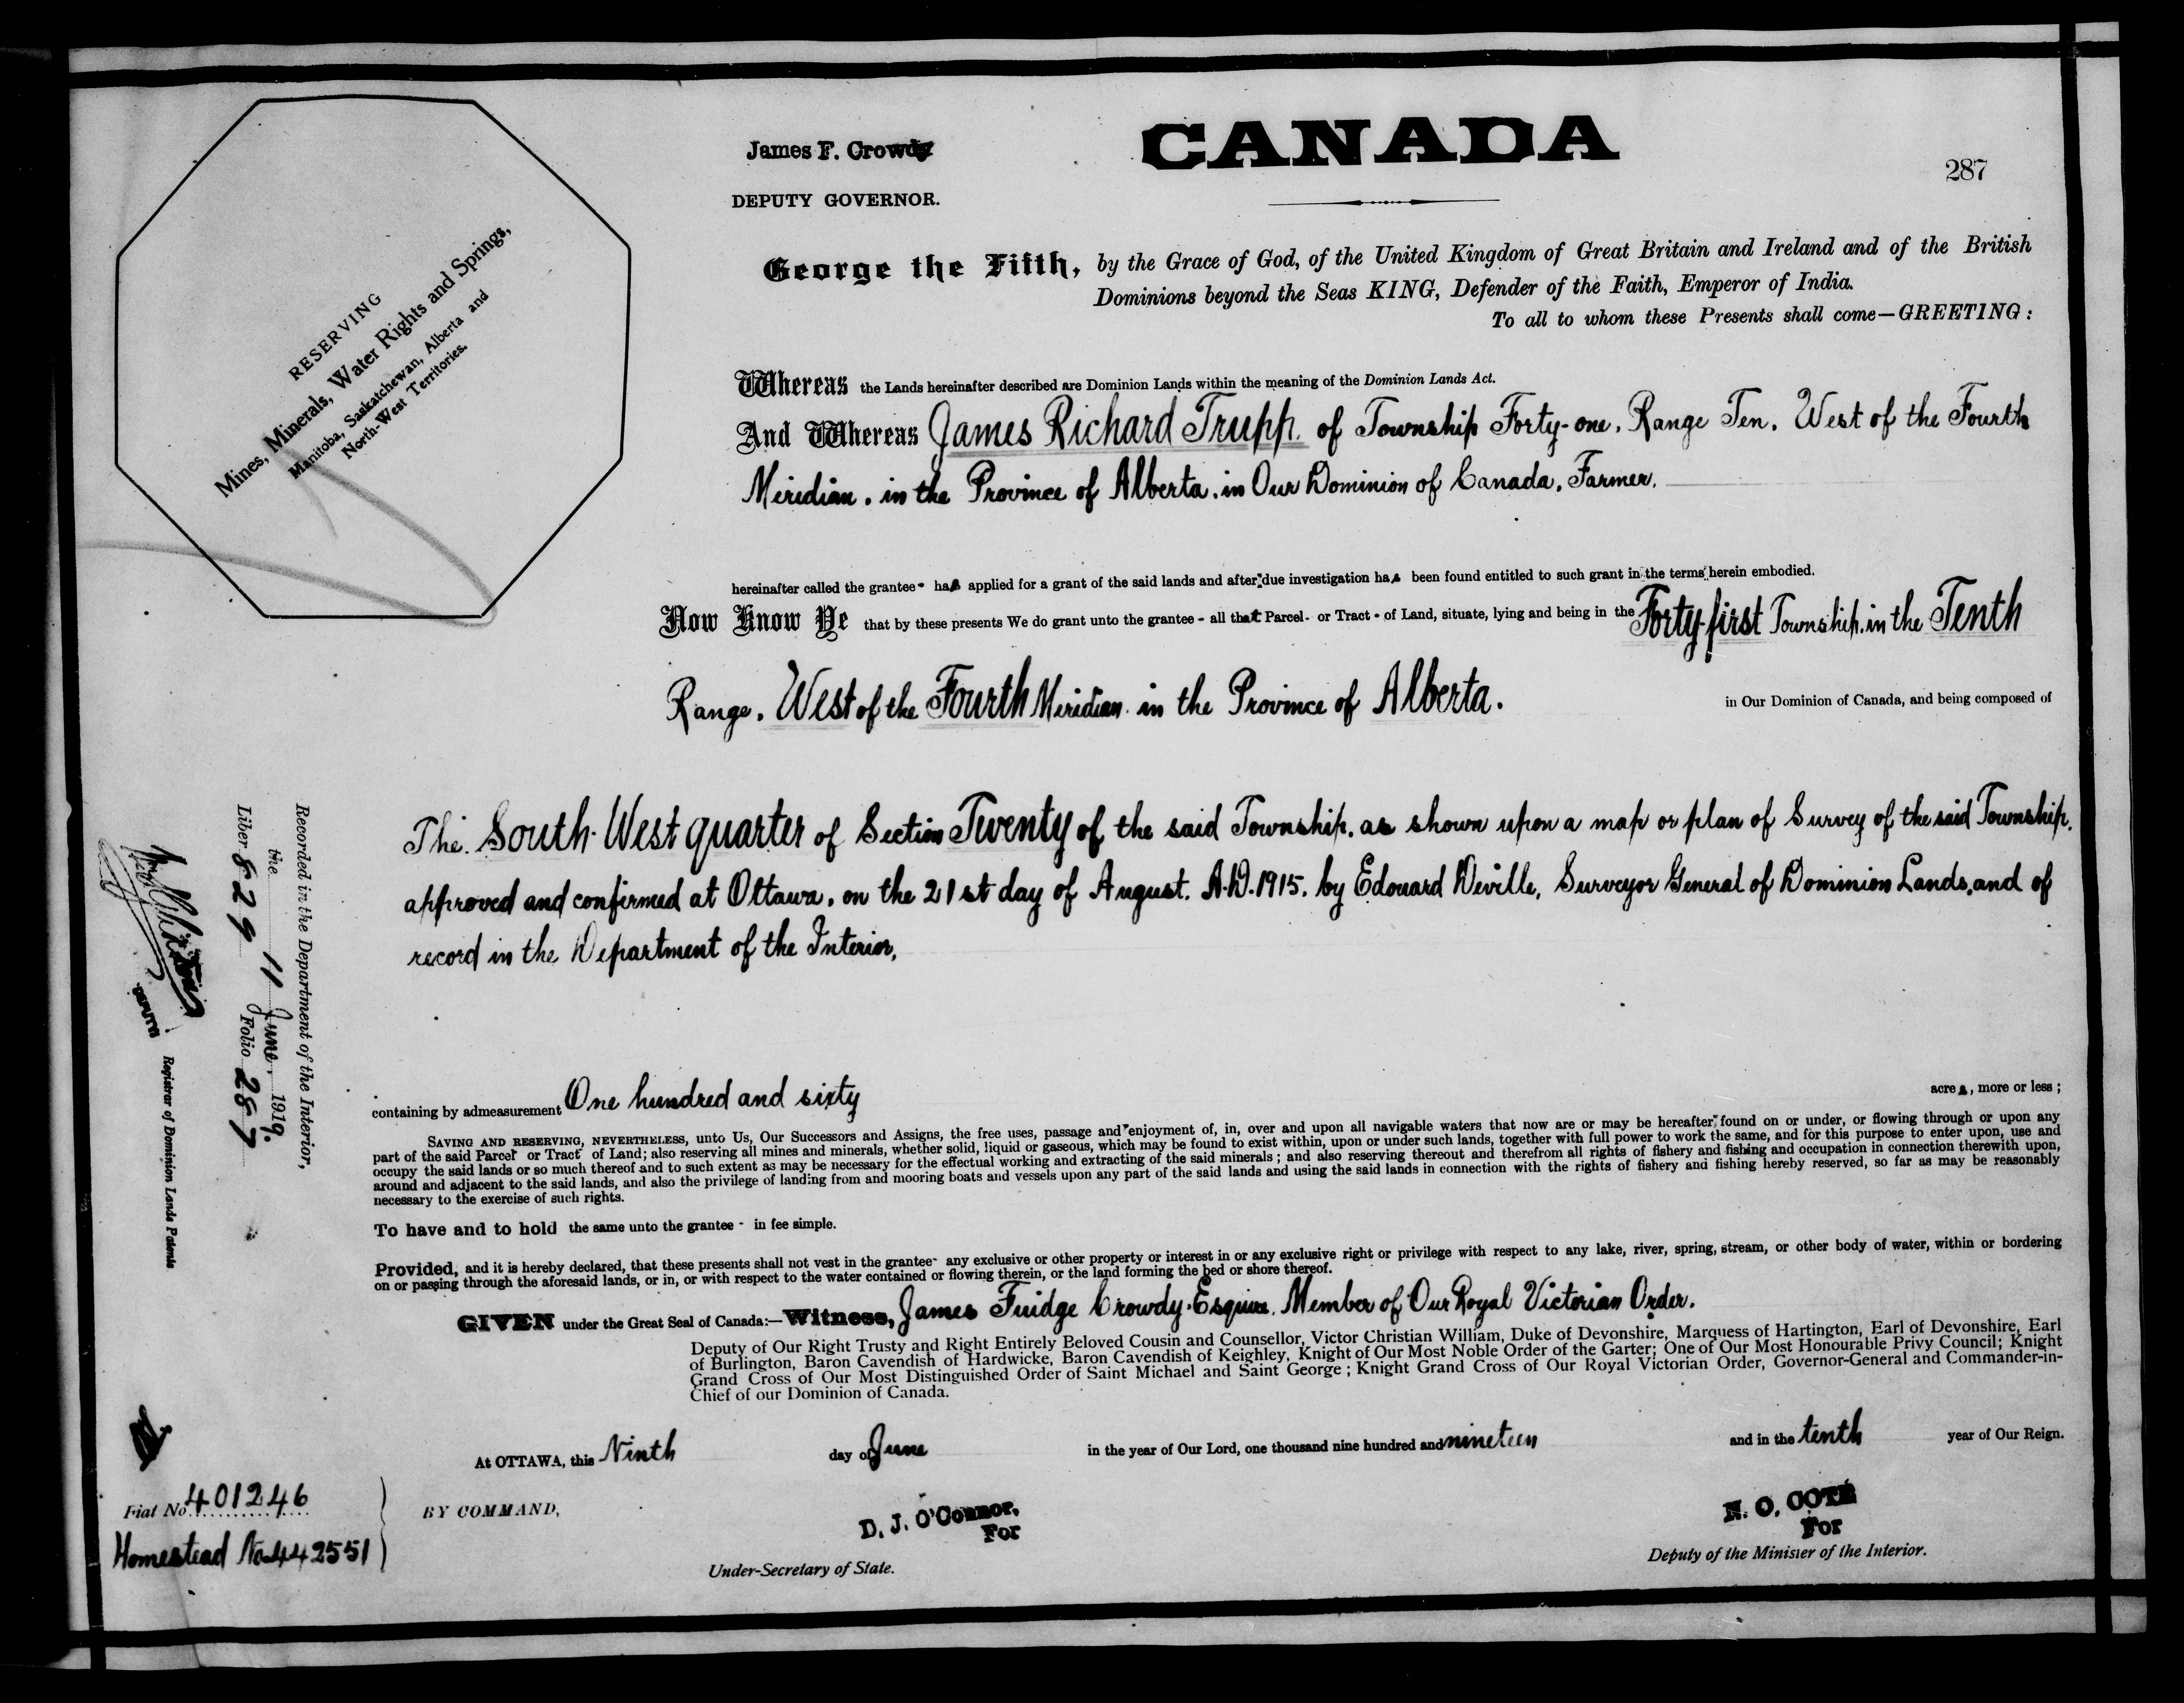 CANADA
James F. Crowdy
287
DEPUTY GOVERNOR.
George the Fifth, by the Grace of God, of the United Kingdom of Great Britain and Ireland and of the British
Dominions beyond the Seas KING, Defender of the Faith, Emperor of India.
To all to whom these Presents shall come—GREETING:
RESERVING
Mines, Minerals, Water Rights and Springs,
Manitoba, Saskatchewan, Alberta and
North-West Territories.
Whereas the Lands hereinafter described are Dominion Lands within the meaning of the Dominion Lands Act.
And Whereas James Richard Trupp. of Township Forty-one, Range Ten, West of the Fourth
Meridian, in the Province of Alberta, in Our Dominion of Canada, Farmer.
hereinafter called the grantee - has applied for a grant of the said lands and after due investigation has been found entitled to such grant in the terms herein embodied.
Now Know Ye that by these presents We do grant unto the grantee - all that Parcel - or Tract - of Land, situate, lying and being in the Forty-first Township, in the Tenth
Range, West of the Fourth Meridian in the Province of Alberta. in Our Dominion of Canada, and being composed of
The South-West quarter of Section Twenty of the said Township, as shown upon a map or plan of Survey of the said Township,
approved and confirmed at Ottawa, on the 21st day of August, A.D. 1915, by Edouard Deville, Surveyor General of Dominion Lands, and of
record in the Department of the Interior,
containing by admeasurement One hundred and sixty acres, more or less;
SAVING AND RESERVING, NEVERTHELESS, unto Us, Our Successors and Assigns, the free uses, passage and enjoyment of, in, over and upon all navigable waters that now are or may be hereafter found on or under, or flowing through or upon any
part of the said Parcel or Tract of Land; also reserving all mines and minerals, whether solid, liquid or gaseous, which may be found to exist within, upon or under such lands, together with full power to work the same, and for this purpose to enter upon, use and
occupy the said lands or so much thereof and to such extent as may be necessary for the effectual working and extracting of the said minerals; and also reserving thereout and therefrom all rights of fishery and fishing and occupation in connection therewith upon,
around and adjacent to the said lands, and also the privilege of landing from and mooring boats and vessels upon any part of the said lands and using the said lands in connection with the rights of fishery and fishing hereby reserved, so far as may be reasonably
necessary to the exercise of such rights.
To have and to hold the same unto the grantee - in fee simple.
Provided, and it is hereby declared, that these presents shall not vest in the grantee - any exclusive or other property or interest in or any exclusive right or privilege with respect to any lake, river, spring, stream, or other body of water, within or bordering
on or passing through the aforesaid lands, or in, or with respect to the water contained or flowing therein, or the land forming the bed or shore thereof.
GIVEN under the Great Seal of Canada:—Witness, James Fuidge Crowdy, Esquire, Member of Our Royal Victorian Order.
Deputy of Our Right Trusty and Right Entirely Beloved Cousin and Counsellor, Victor Christian William, Duke of Devonshire, Marquess of Hartington, Earl of Devonshire, Earl
of Burlington, Baron Cavendish of Hardwicke, Baron Cavendish of Keighley, Knight of Our Most Noble Order of the Garter; One of Our Most Honourable Privy Council; Knight
Grand Cross of Our Most Distinguished Order of Saint Michael and Saint George; Knight Grand Cross of Our Royal Victorian Order, Governor-General and Commander-in-
Chief of our Dominion of Canada.
At OTTAWA, this Ninth day of June in the year of Our Lord, one thousand nine hundred and nineteen and in the tenth year of Our Reign.
BY COMMAND,
D. J. O'Connor,
For
Under-Secretary of State.
N. O. COTE
For
Deputy of the Minister of the Interior.
Recorded in the Department of the Interior,
the 11 June, 1919.
Liber 829 Folio 287
DEPUTY
Registrar of Dominion Lands Patents
Fiat No 401246
Homestead No 442551